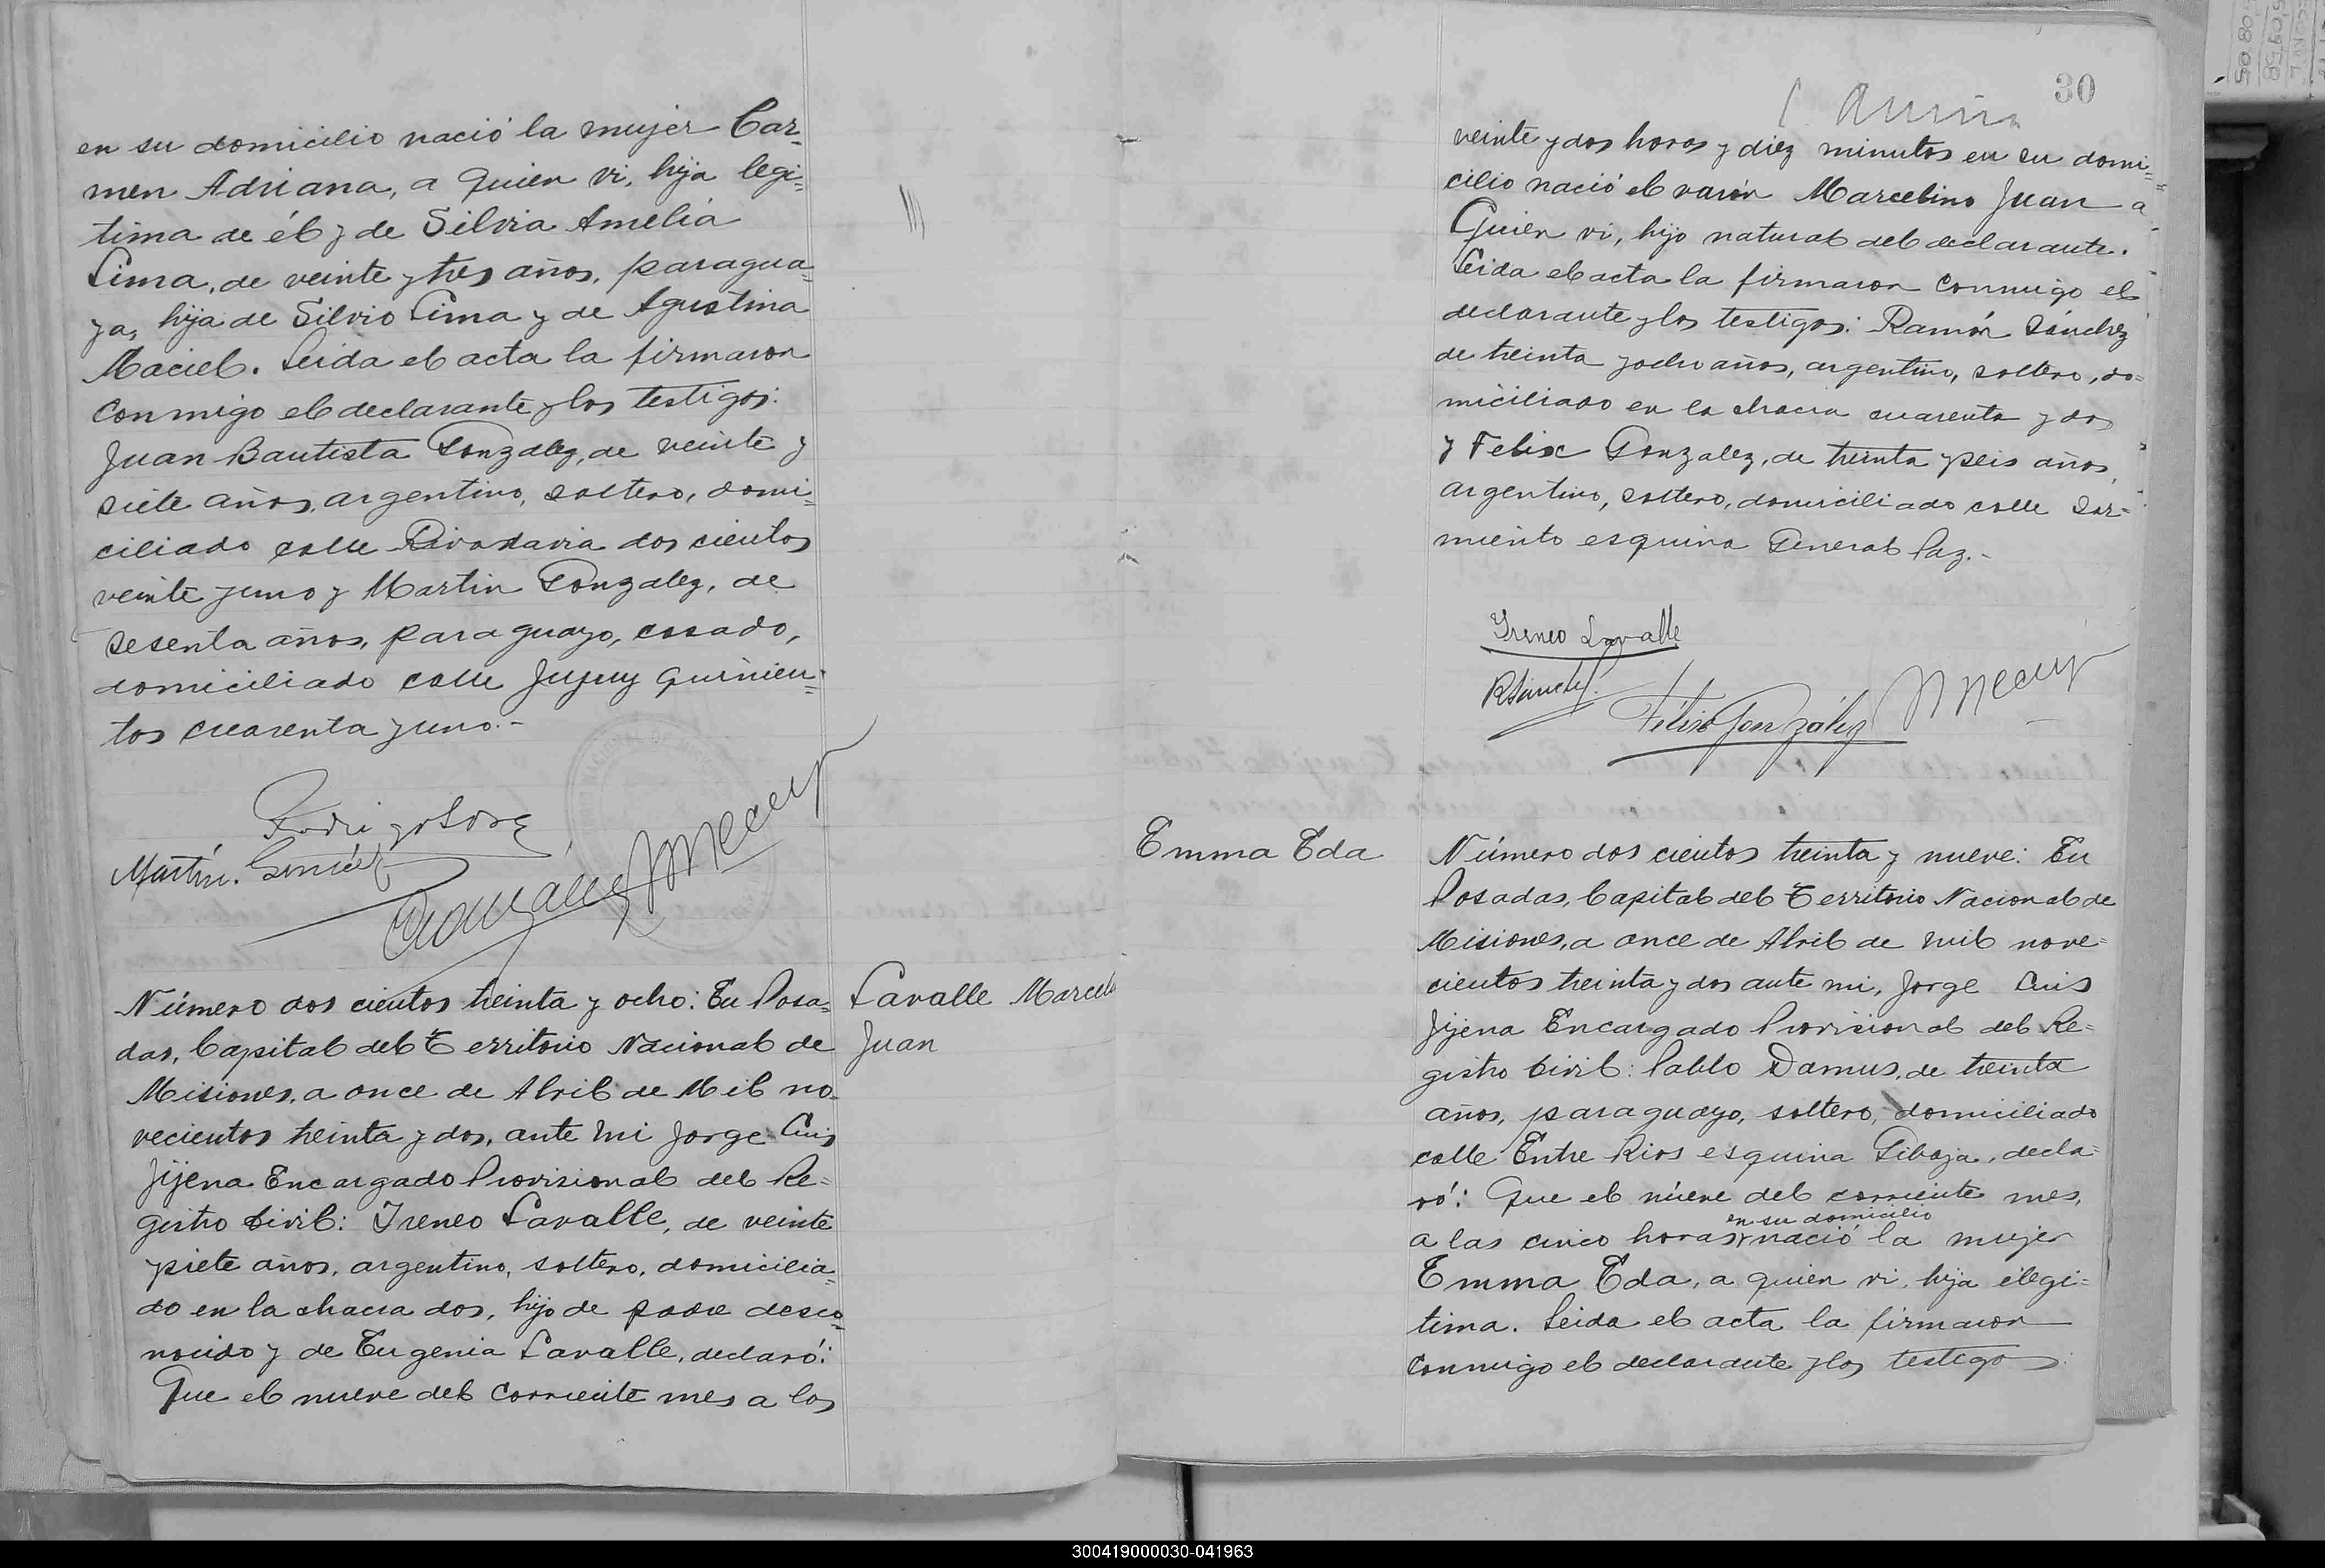 en su domicilio nació la mujer Car-
men Adriana, a quien vi, hija legi-
tima de él y de Silvia Amelia
Lima, de veinte y tres años, paragua-
ya, hija de Silvio Lima y de Agustina
Maciel. Leida el acta la firmaron
conmigo el declarante y los testigos:
Juan Bautista Gonzalez, de veinte y
siete años, argentino, soltero, domi-
ciliado calle Rivadavia dos cientos
veinte y uno y Martin Gonzalez, de
sesenta años, paraguayo, casado,
domiciliado calle Jujuy quinien-
tos cuarenta y uno.-
Martín.
Número dos cientos treinta y ocho: En Posa-
das, Capital del Territorio Nacional de
Misiones, a once de Abril de Mil no-
vecientos treinta y dos, ante mi Jorge Luis
Jijena Encargado Provisional del Re-
gistro Civil: Ireneo Lavalle, de veinte
y siete años, argentino, soltero, domicilia-
do en la chacra dos, hijo de padre desco-
nocido y de Eugenia Lavalle, declaró:
Que el nueve del corriente mes a las
Lavalle Marcelo
Juan
30
veinte y dos horas y diez minutos en su domi-
cilio nació el varón Marcelino Juan a
quien vi, hijo natural del declarante.
Leida el acta la firmaron conmigo el
declarante y los testigos: Ramón Sánchez
de treinta y ocho años, argentino, soltero, do-
miciliado en la chacra cuarenta y dos
y Felix Gonzalez, de treinta y seis años,
argentino, soltero, domiciliado calle Sar-
miento esquina General Paz.-
Ireneo Lavalle
RSánchez
Félix González
Emma Eda
Número dos cientos treinta y nueve: En
Posadas, Capital del Territorio Nacional de
Misiones, a once de Abril de mil nove-
cientos treinta y dos ante mi, Jorge Luis
Jijena Encargado Provisional del Re-
gistro Civil: Pablo Damus, de treinta
años, paraguayo, soltero, domiciliado
calle Entre Rios esquina Tiboja, decla-
ró: Que el nueve del corriente mes,
en su domicilio
a las cinco horas nació la mujer
Emma Eda, a quien vi, hija ilegi-
tima. Leida el acta la firmaron
conmigo el declarante y los testigos:
300419000030-041963